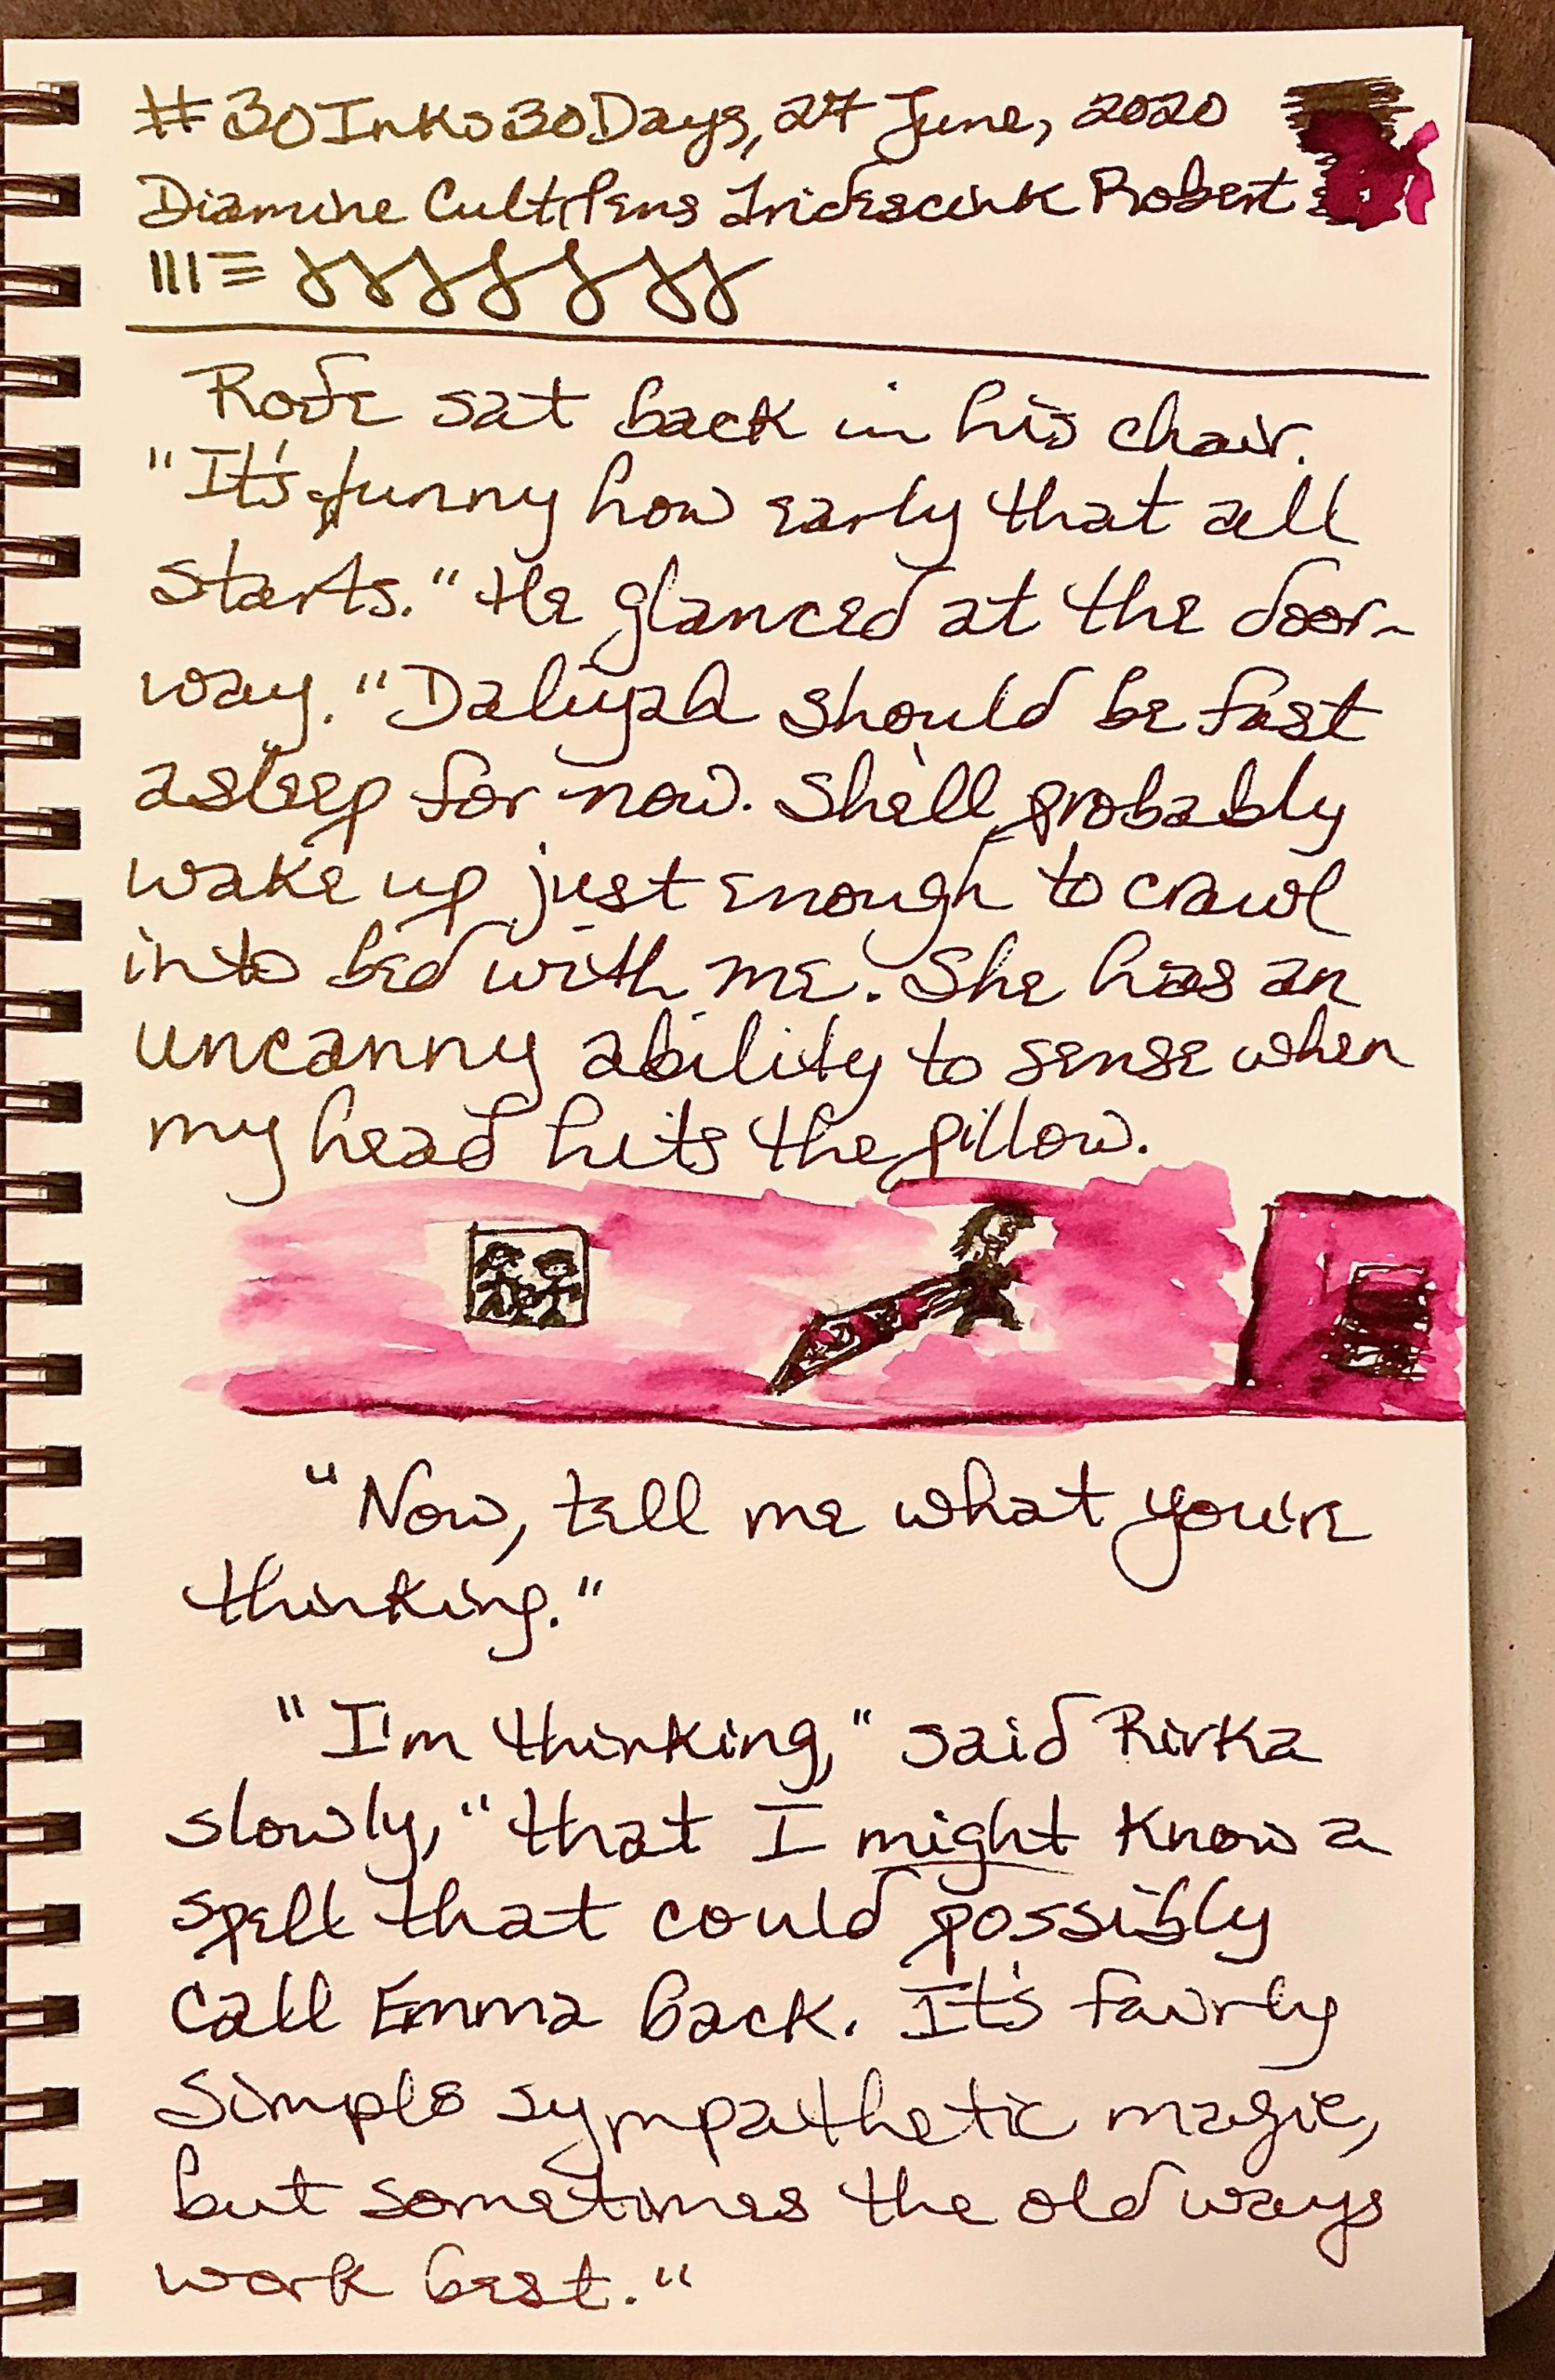 #30Inks30Days, 27 June, 2020
Diamine Cult Pens Iridescink Robert
Rofe sat back in his chair.
"It's funny how early that all
starts." He glanced at the door-
way. "Daliyah should be fast
asleep for now. She'll probably
wake up just enough to crawl
into bed with me. She has an
uncanny ability to sense when
my head hits the pillow.
"Now, tell me what you're
thinking."
"I'm thinking," said Rivka
slowly, "that I might know a
spell that could possibly
call Emma back. It's fairly
simple sympathetic magic,
but sometimes the old ways
work best."